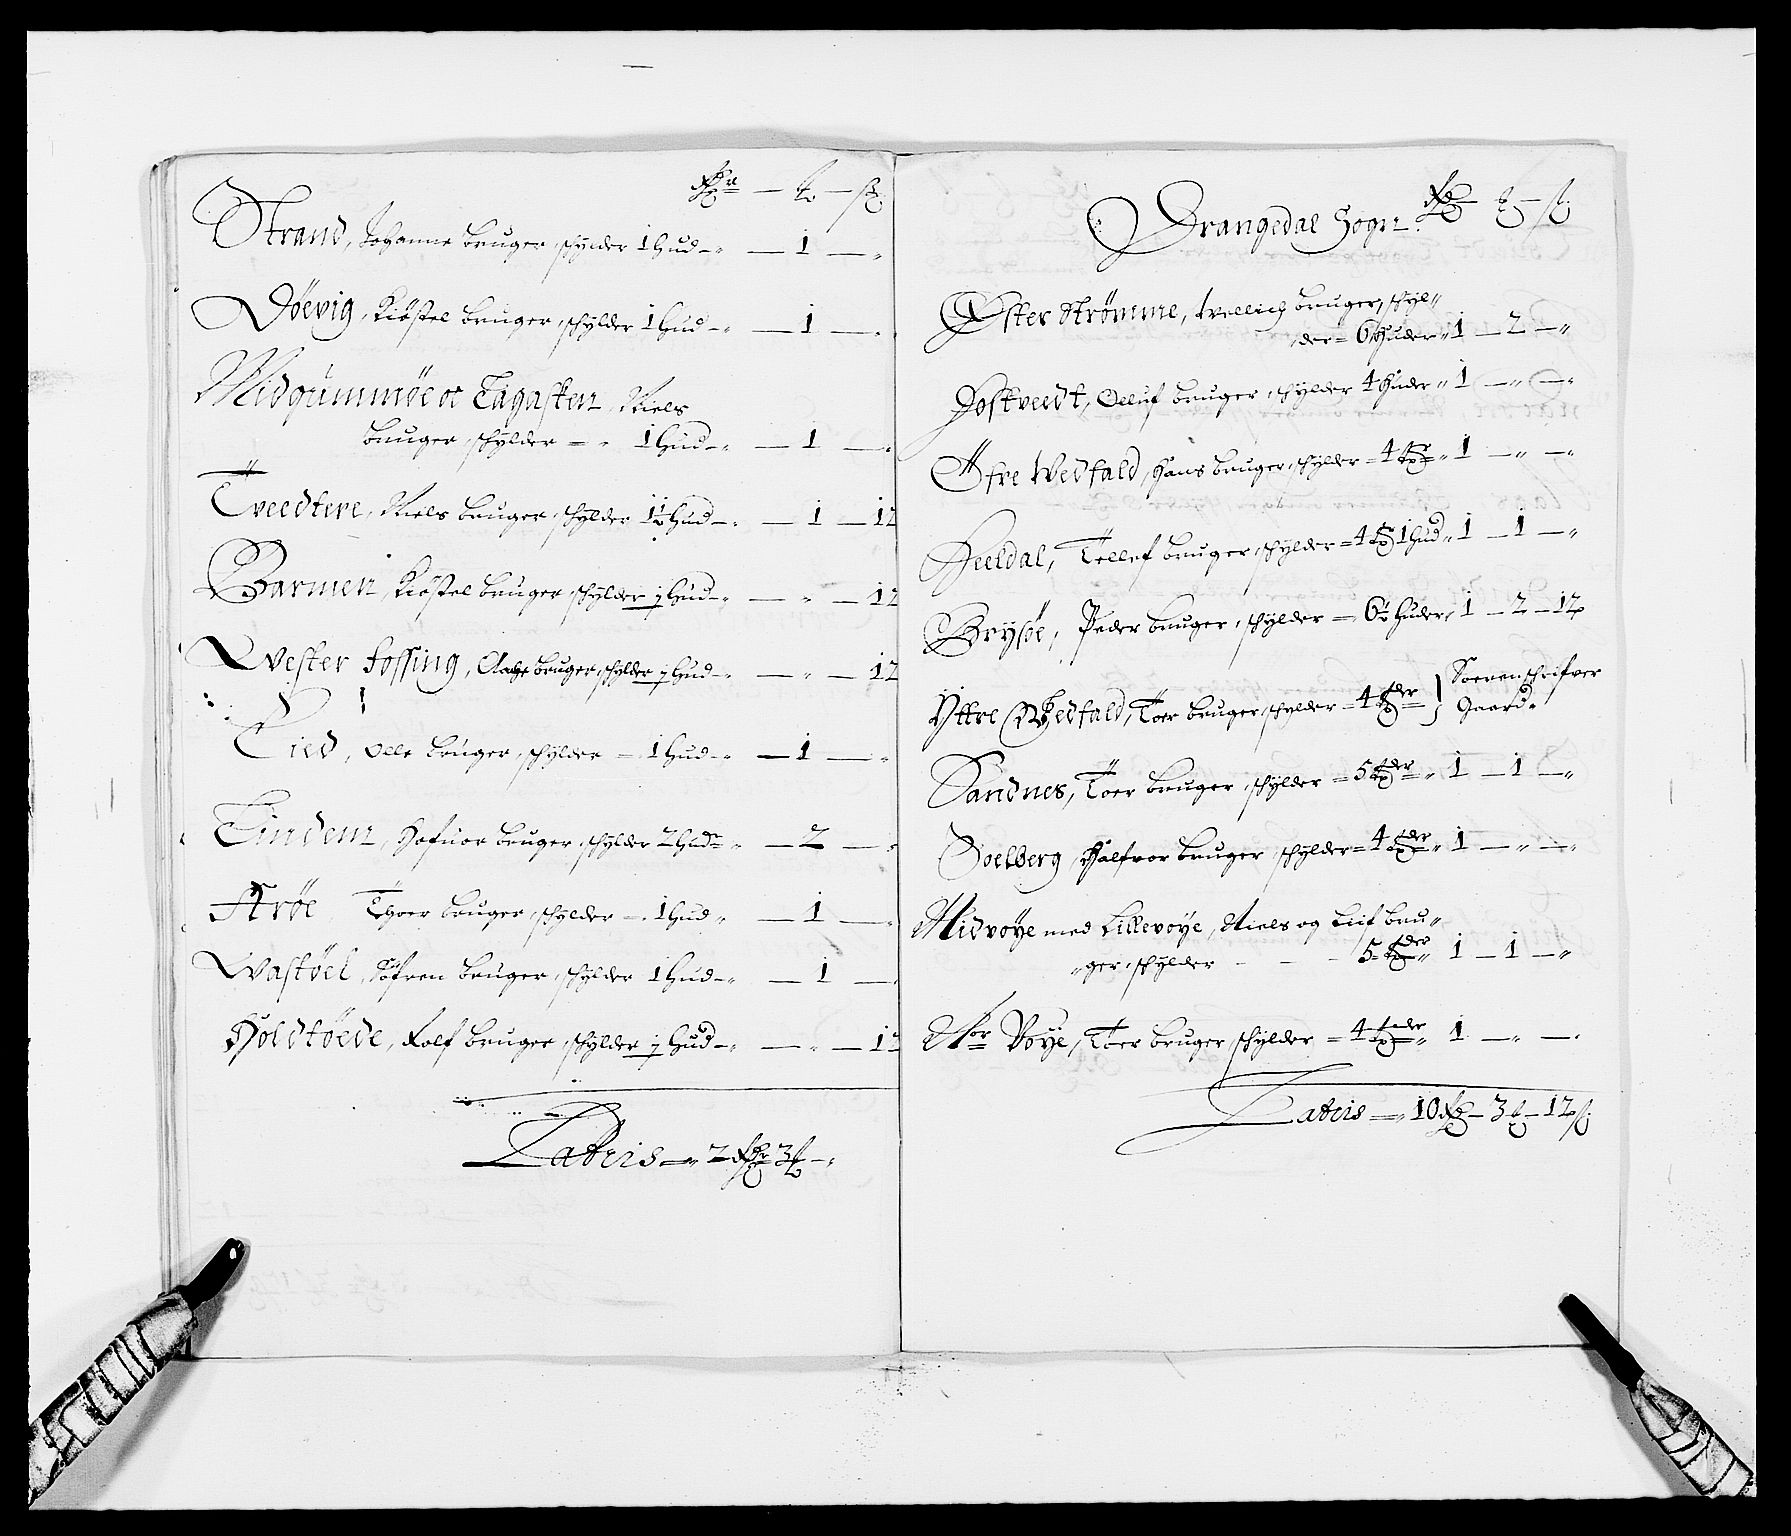 Rdr — ƶ — ß
Strand, Johanne bruger, schylder 1 Hud — „ — 1 — „
Döevig, Kiöstel bruger, schylder 1 Hud — „ — 1 — „
Midgummöe oc Tagasken, Niels
bruger, schylder = „ 1 Hud — „ — 1 — „
Tveedtene, Niels bruger, schylder 1½ Hud — „ — 1 — 12
Barmen, Kiöstel bruger schylder ½ Hud — „ — „ — 12
Wester Fossing, Aage bruger, schylder ½ Hud — „ — „ — 12
Eied, Olle bruger, schylder — 1 Hud — „ — 1 — „
Lindem, Hafuor bruger, schylder 2 Hudr „ — 2 — „
Aröe Thoer bruger, schylder — 1 Hud „ — 1 — „
Wastöel, Söfren bruger, schylder 1 Hud — „ — 1 — „
Holdtöede, Rolf bruger, schylder ½ Hud — „ — „ — 12
Lateris — „ 2 Rdr 3 ƶ — „
Drangedal Sogn: Rd — ƶ — ß
Öster Strömme, bruger, schyl„
„der = 6 Huder „ 1 — 2 — „
Jostvedt, Olluf bruger, schylder 4 Huder „ 1 — „ — „
Öfre Wedfald, Hans bruger, schylder = 4 „ 1 — „ — „
Heeldal, Tellef bruger, schylder = 4 1 Hud „ 1 — 1 — „
Brysöe, Peder bruger, schylder = 6½ Huder „ 1 — 2 — 12
Yttre Wedfald, Toer bruger, schylder = 4 } Soerenschrifver
Gaard.
Sandnes, Toer bruger, schylder = 5 „ 1 — 1 — „
Soelberg, Halfvor bruger schylder = 4 „ 1 — „ — „
Midvöye med Lillevöye, Niels og Leif bru„
„ger, schylder - - - 5 „ 1 — 1 — „
Nor Vöye, Toer bruger, schylder = 4 „ 1 — „ — „
Lateris — „ 10 Rd — 3 ƶ — 12 ß